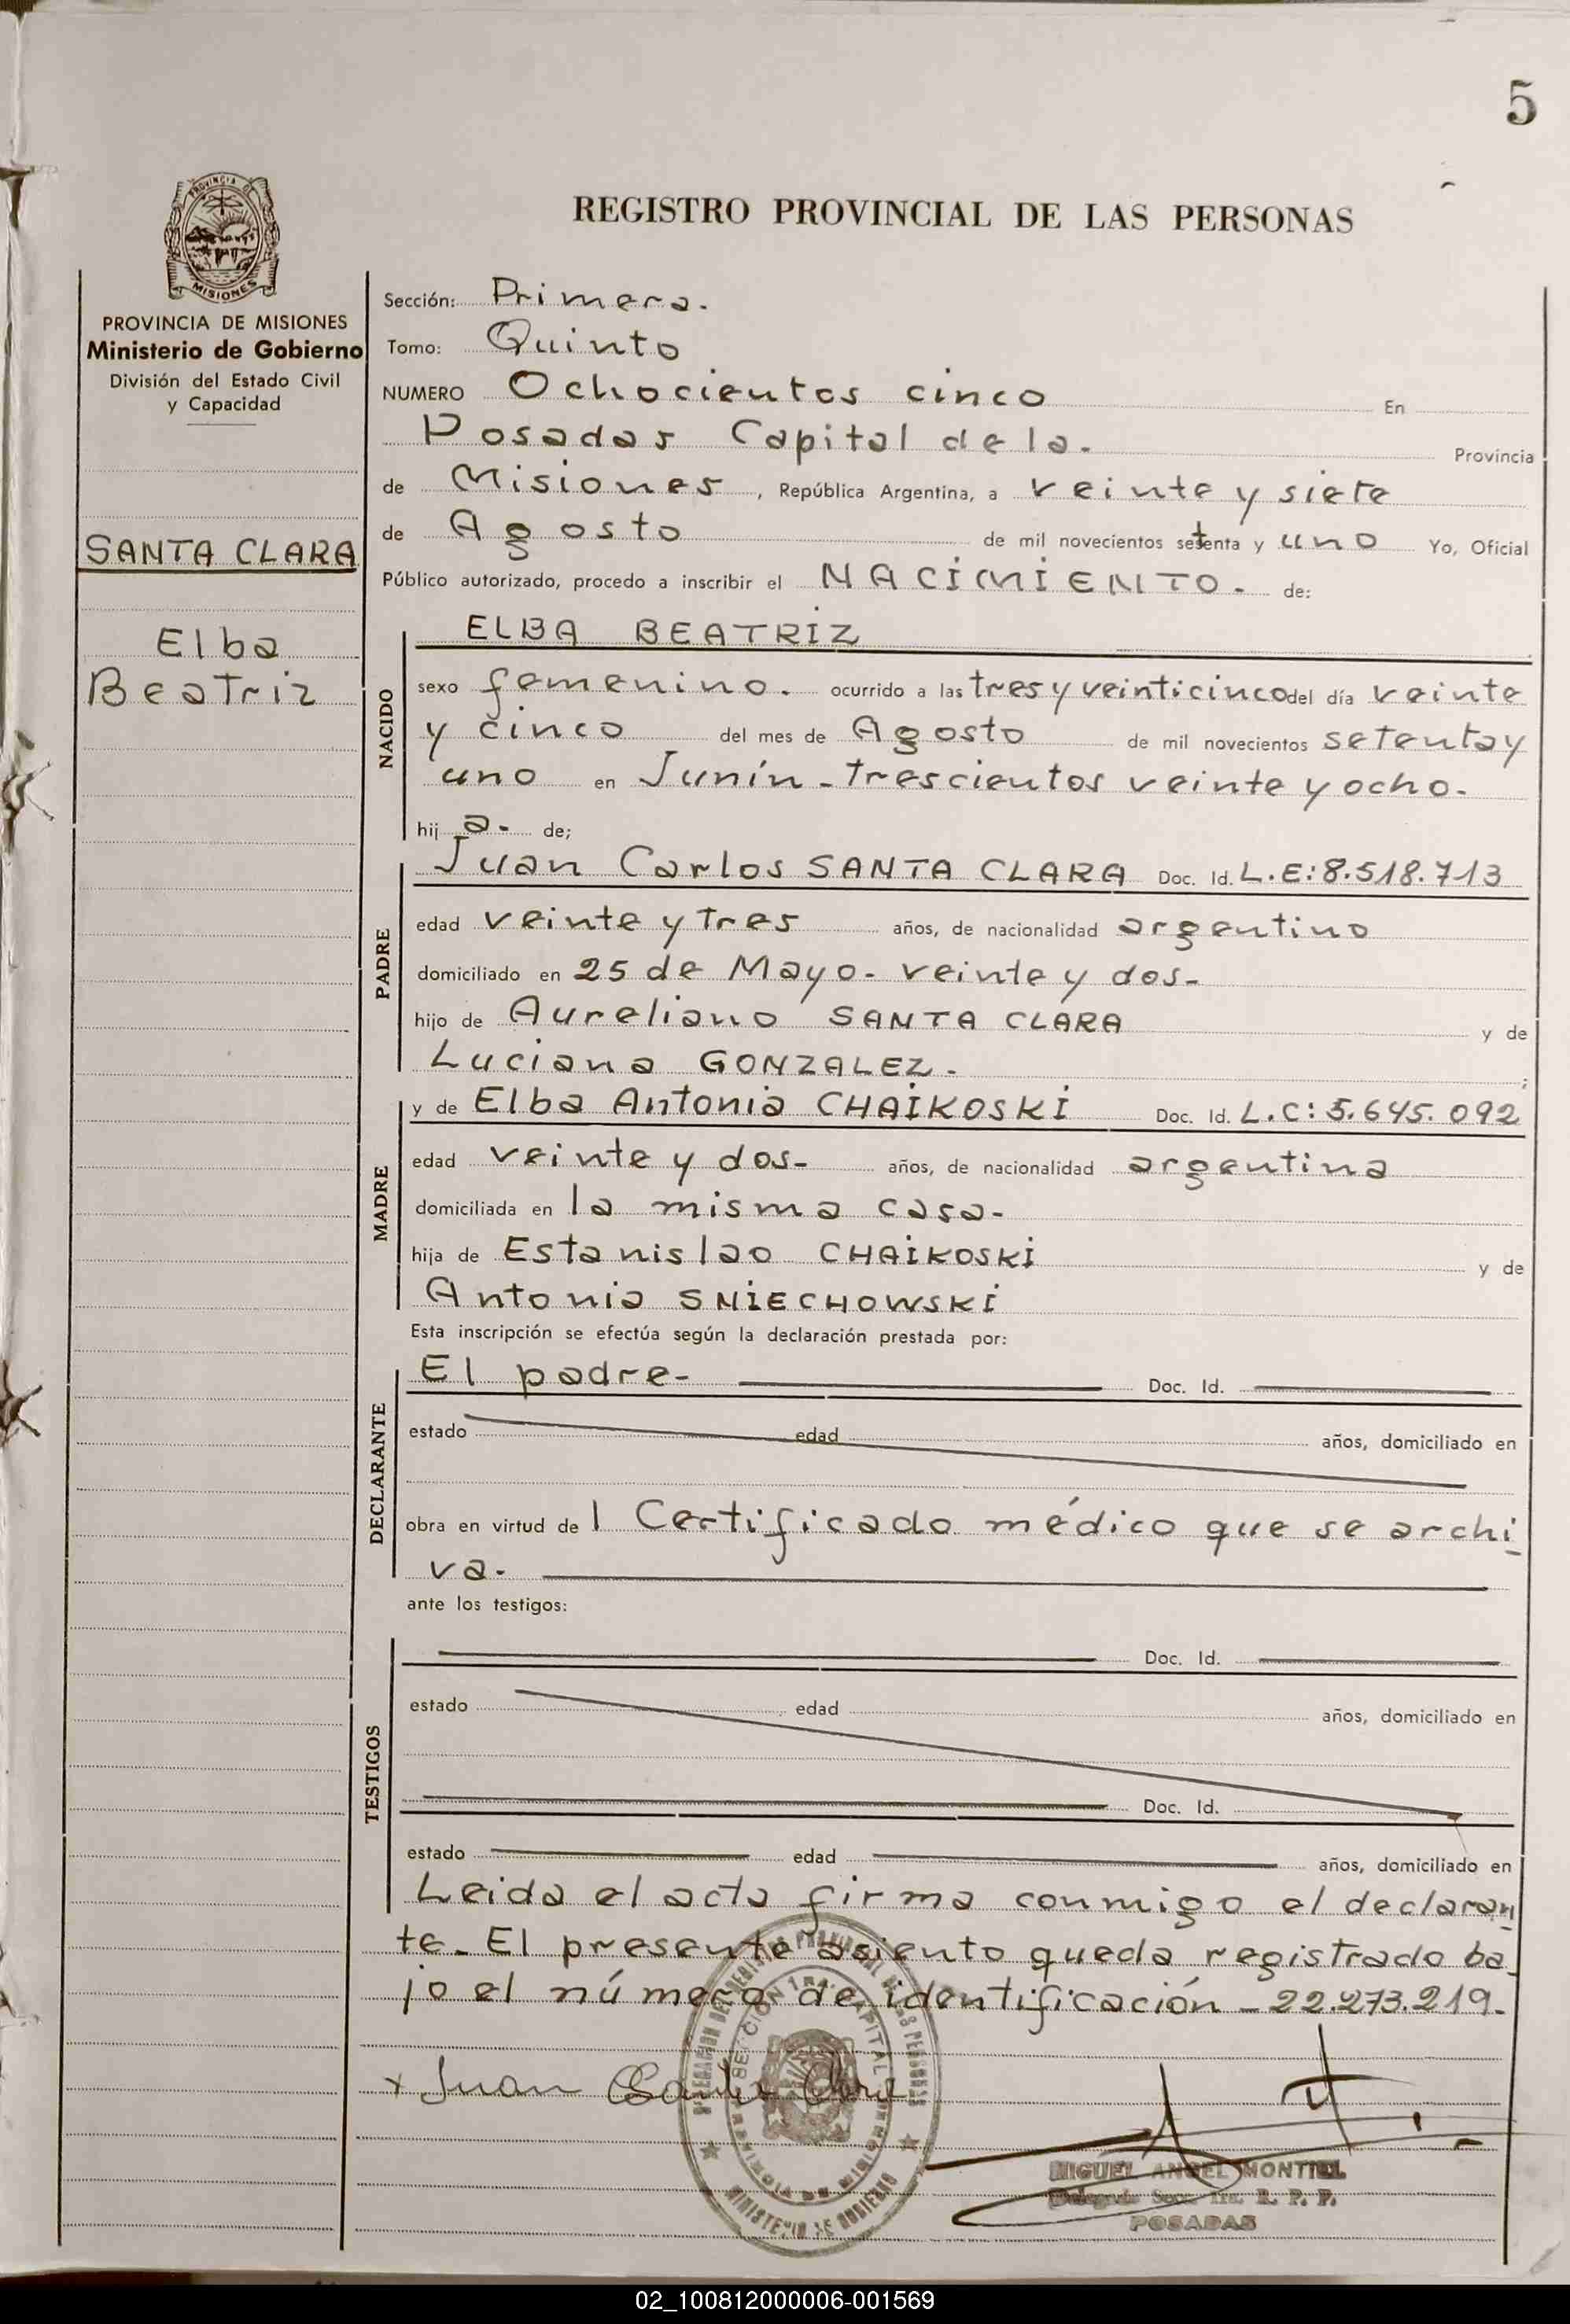 5
PROVINCIA DE
MISIONES
REGISTRO PROVINCIAL DE LAS PERSONAS
PROVINCIA DE MISIONES
Ministerio de Gobierno
División del Estado Civil
y Capacidad
SANTA CLARA
Elba
Beatriz
Sección: Primera.
Tomo: Quinto
NUMERO Ochocientos cinco En
Posadas Capital de la. Provincia
de Misiones, República Argentina, a veinte y siete
de Agosto de mil novecientos setenta y uno Yo, Oficial
Público autorizado, procedo a inscribir el NACIMIENTO. de:
NACIDO
ELBA BEATRIZ
sexo femenino. ocurrido a las tres y veinticinco del día veinte
y cinco del mes de Agosto de mil novecientos setenta y
uno en Junín - trescientos veinte y ocho.
hij a. de;
PADRE
Juan Carlos SANTA CLARA Doc. Id. L.E: 8.518.713
edad veinte y tres años, de nacionalidad argentino
domiciliado en 25 de Mayo - veinte y dos-
hijo de Aureliano SANTA CLARA y de
Luciana GONZALEZ. ;
MADRE
y de Elba Antonia CHAIKOSKI Doc. Id. L.C: 5.645.092
edad veinte y dos- años, de nacionalidad argentina
domiciliada en la misma casa-
hija de Estanislao CHAIKOSKI y de
Antonia SNIECHOWSKI
Esta inscripción se efectúa según la declaración prestada por:
DECLARANTE
El padre- Doc. Id.
estado edad años, domiciliado en
obra en virtud de l Certificado médico que se archi
va.
ante los testigos:
TESTIGOS
Doc. Id.
estado edad años, domiciliado en
Doc. Id.
estado edad años, domiciliado en
Leida el acta firma conmigo el declaran
te. El presente asiento queda registrado ba
jo el número de identificación - 22.273.219.
x Juan C Santa Clara
MINISTERIO DE GOBIERNO
MIGUEL ANGEL MONTIEL
Delegado Secc. 1ra. R. P. P.
POSADAS
02_100812000006-001569